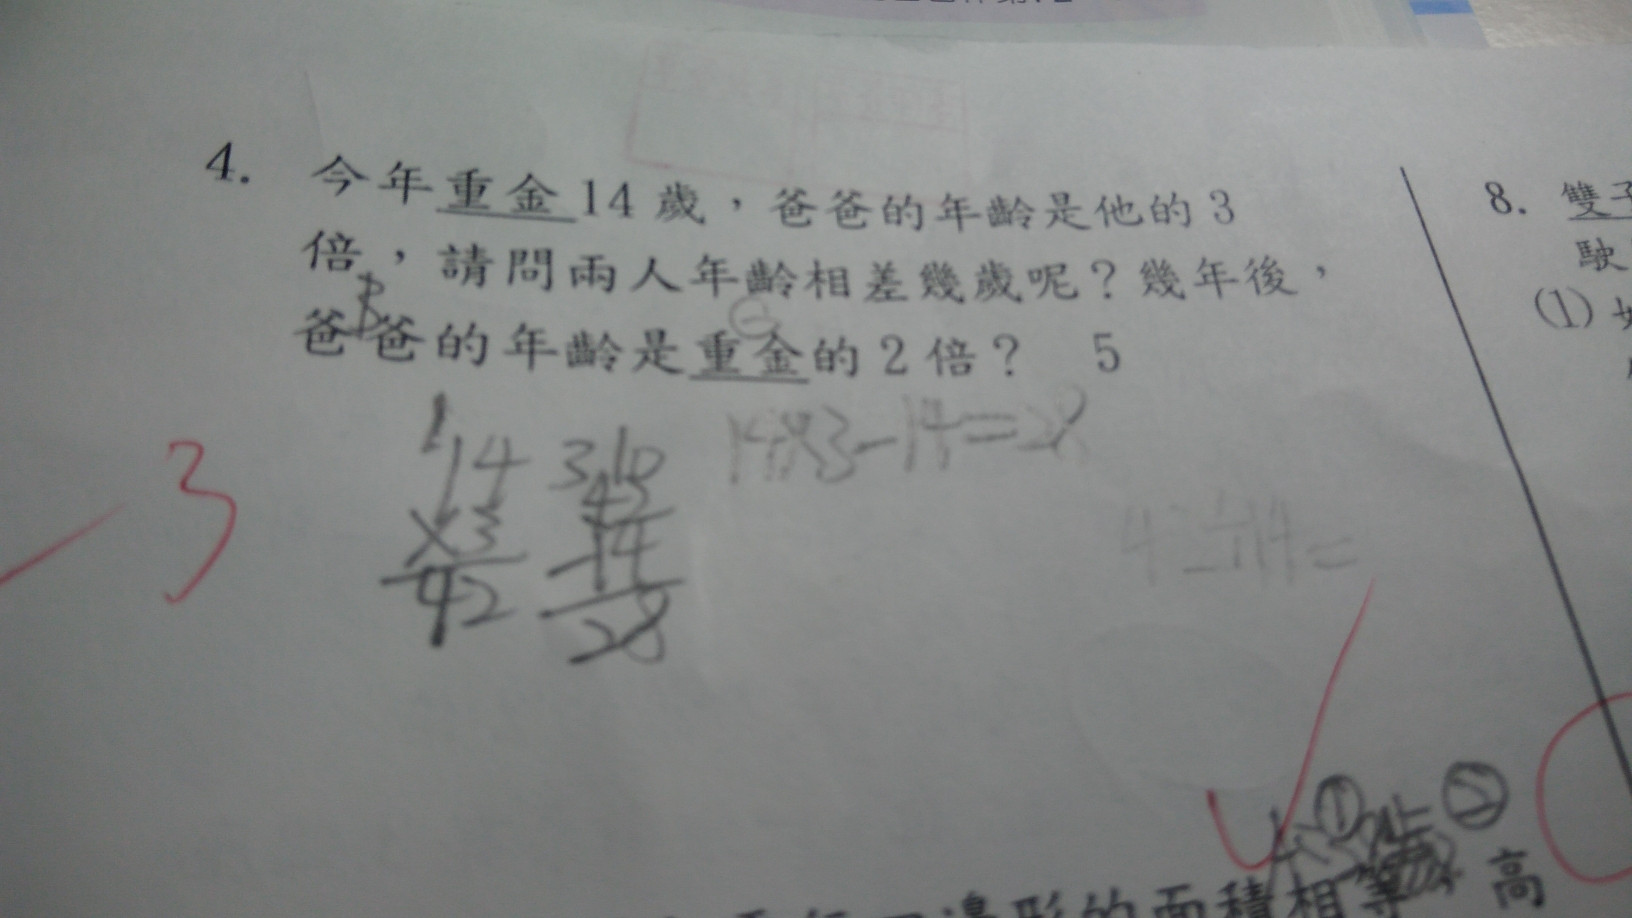 4. 今年重金14歲，爸爸的年齡是他的3
倍，請問兩人年齡相差幾歲呢？幾年後，
爸爸的年齡是重金的2倍？ 5
14×3-14=28
1
14
×3
42
3 10
42
-14
28
42÷14=
3
8. 雙子
駛
(1)
① ②
邊形的面積相等，高